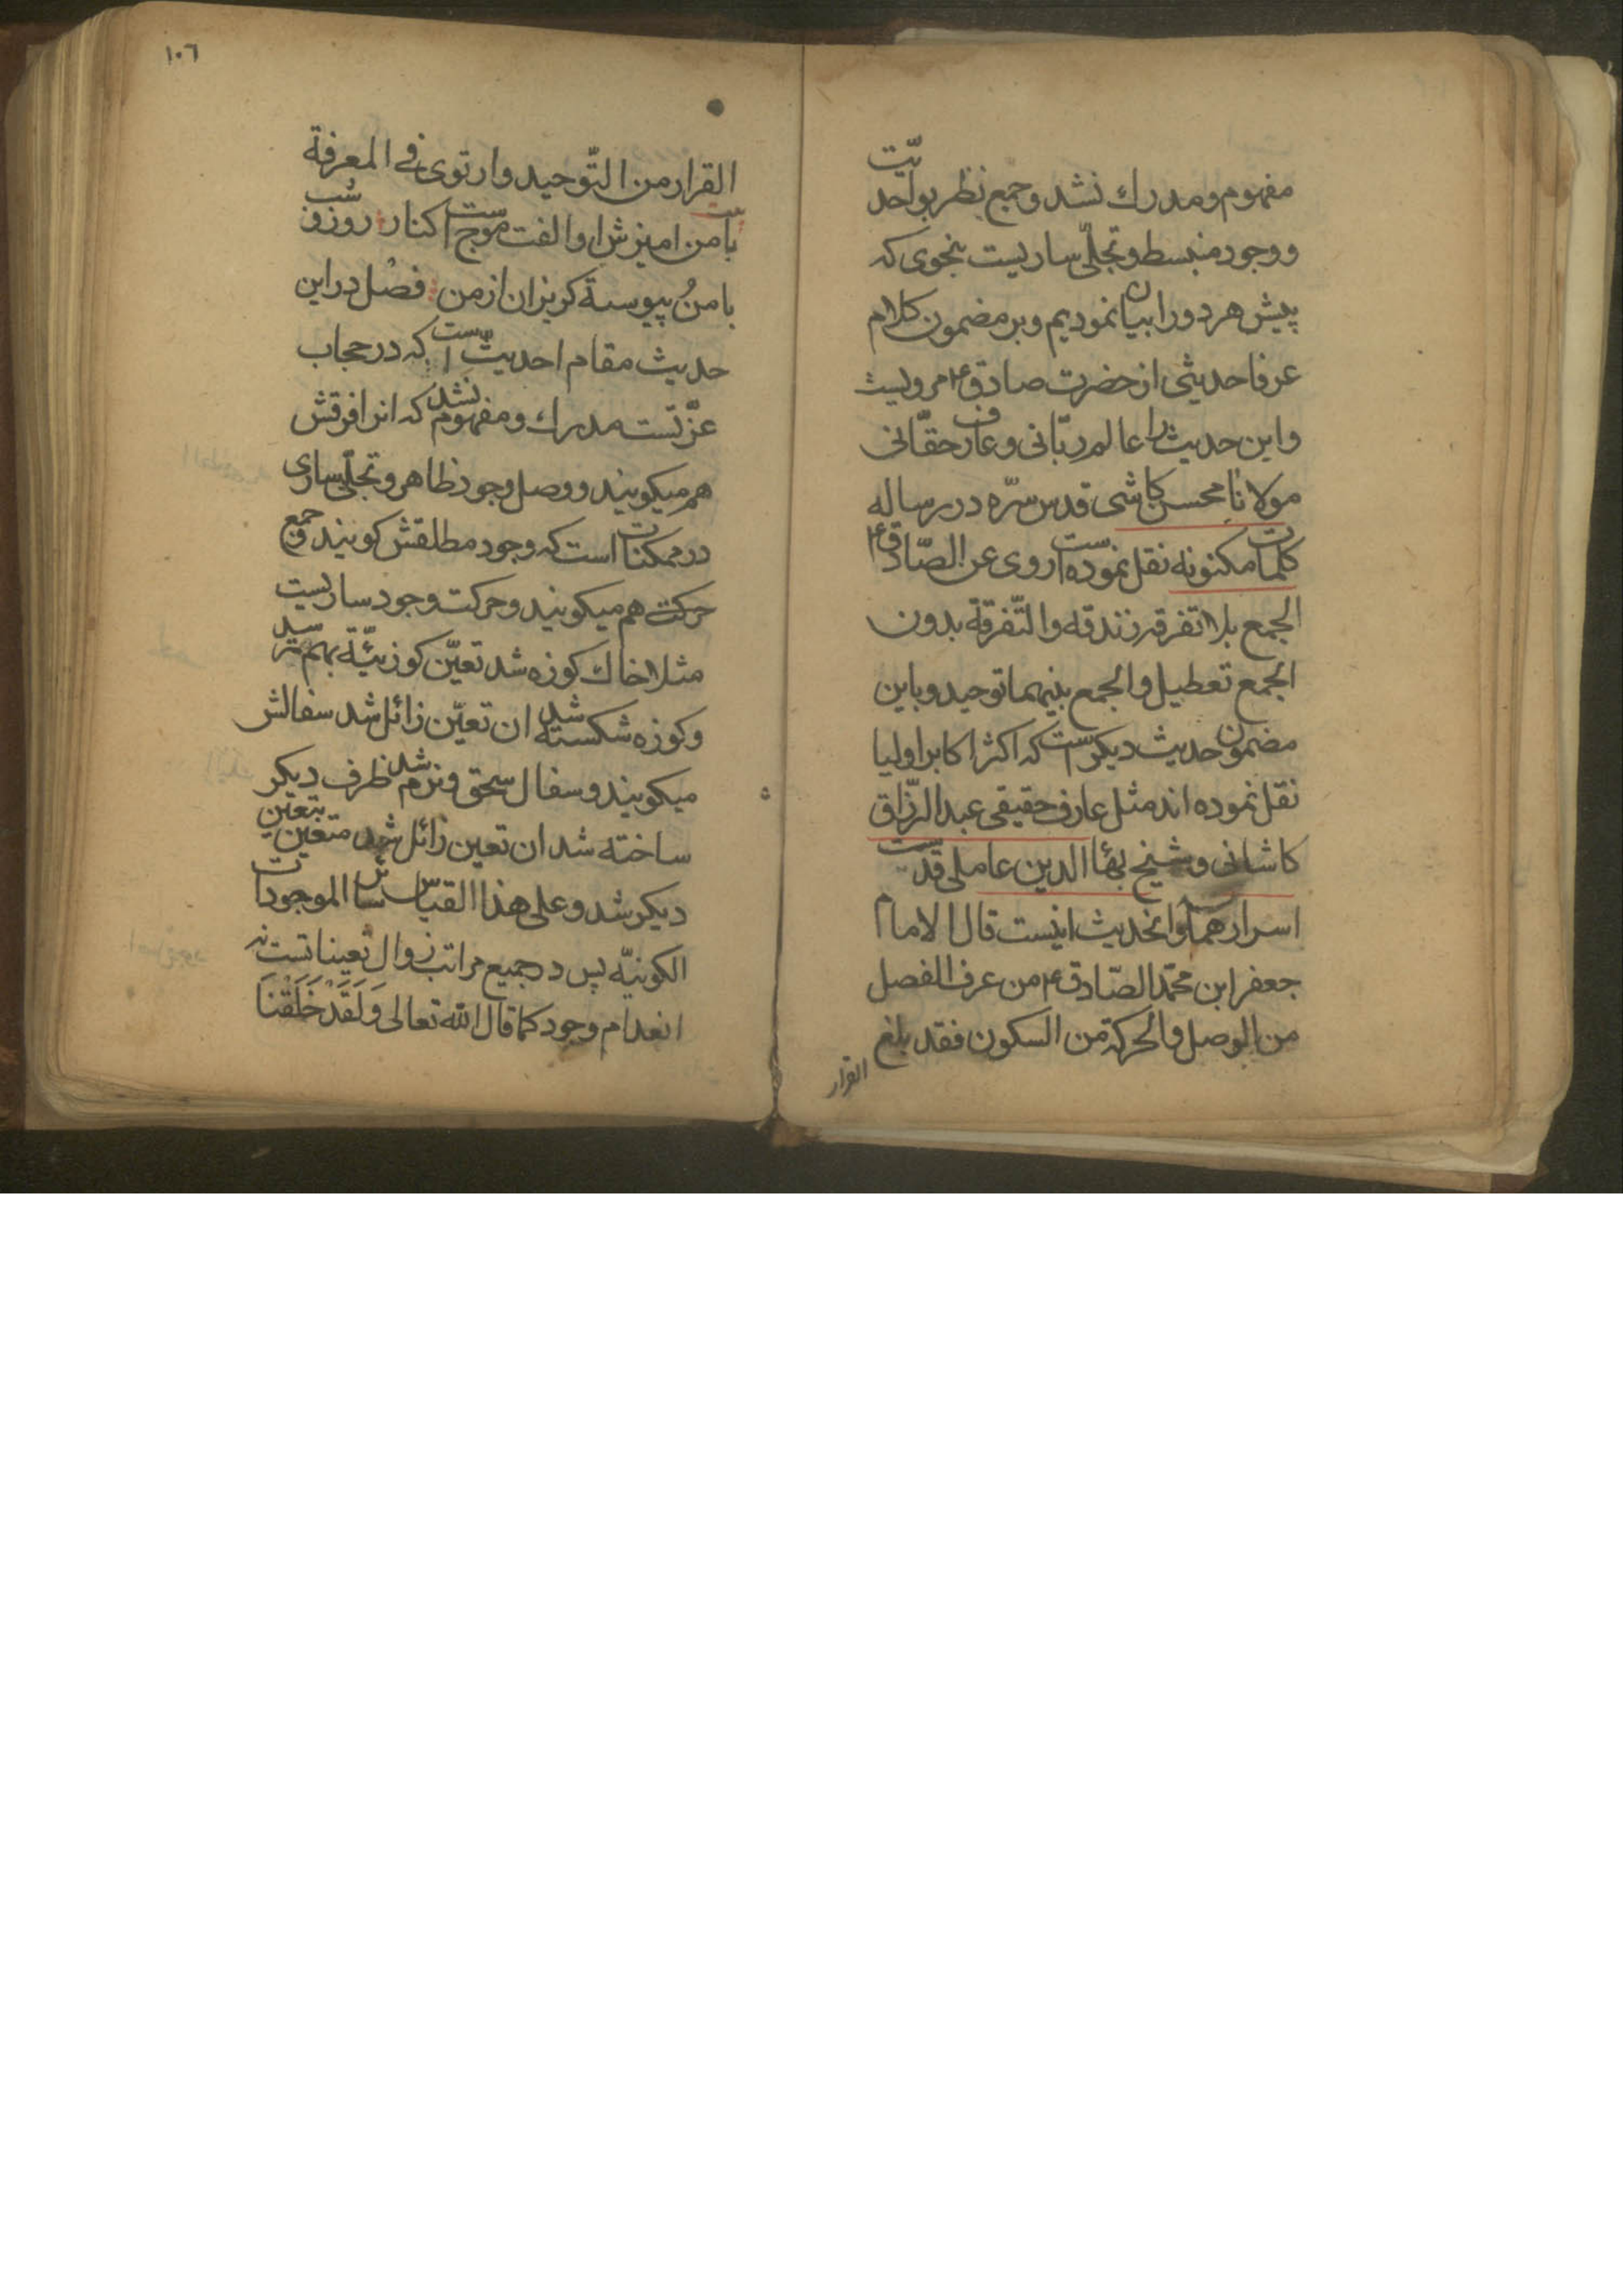 مفهوم و مدرك نشد و جمع نظر بواحديّت
و وجود منبسط و تجلّی ساریست بنحوی که
پیش هر دو را بیان نمودیم و بر مضمون کلام
عرفا حدیثی از حضرت صادق ع مرویست
و این حدیث را عالم ربّانی و عارف حقّانی
مولانا محسن کاشی قدس سرّه در رساله
کلمات مکنونه نقل نموده است روی عن الصّادق ع
الجمع بلا تفرقه زندقه والتّفرقة بدون
الجمع تعطیل والجمع بینهما توحید و باین
مضمون حدیث دیکر است که اکثر اکابر اولیا
نقل نموده اند مثل عارف حقیقی عبد الرّزّاق
کاشانی و شیخ بهٔا الدین عاملی قدّست
اسرارهما و انحدیث اینست قال الامام
جعفر ابن محمّد الصّادق ع من عرف الفصل
من الوصل والحرکة من السکون فقد بلغ
القرار
١٠٦
القرار من التّوحید وارتوی فی المعرفة
بیت با من امیزش او الفت موج است کنار روز و شب
با من و پیوسته کریزان از من فصل در این
حدیث مقام احدیّت است که در حجاب
عزّتست مدرك و مفهوم نشد که انرا فرقش
هم میکویند و وصل وجود ظاهر و تجلّی ساری
در ممکنات است که وجود مطلقش کویند و جمع
حرکت هم میکویند و حرکت وجود ساریست
مثلا خاك کوزه شد تعیّن کوزیّة بهم رسید
و کوزه شکسته شد ان تعیّن زائل شد سفالش
میکویند و سفال سحق و نرم شد ظرف دیکر
ساخته شد ان تعین زائل شد متعین بتعین
دیکر شد و علی هذا القیاس سائر الموجودات
الکونیّه پس در جمیع مراتب زوال تعیناتست نه
انعدام وجود کما قال الله تعالی وَلَقَدْ خَلَقْنَا